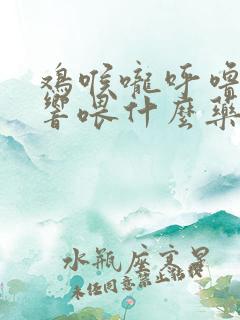 鸡喉咙呼噜
响喂什麽药
水瓶座寡男
未经同意禁止转载